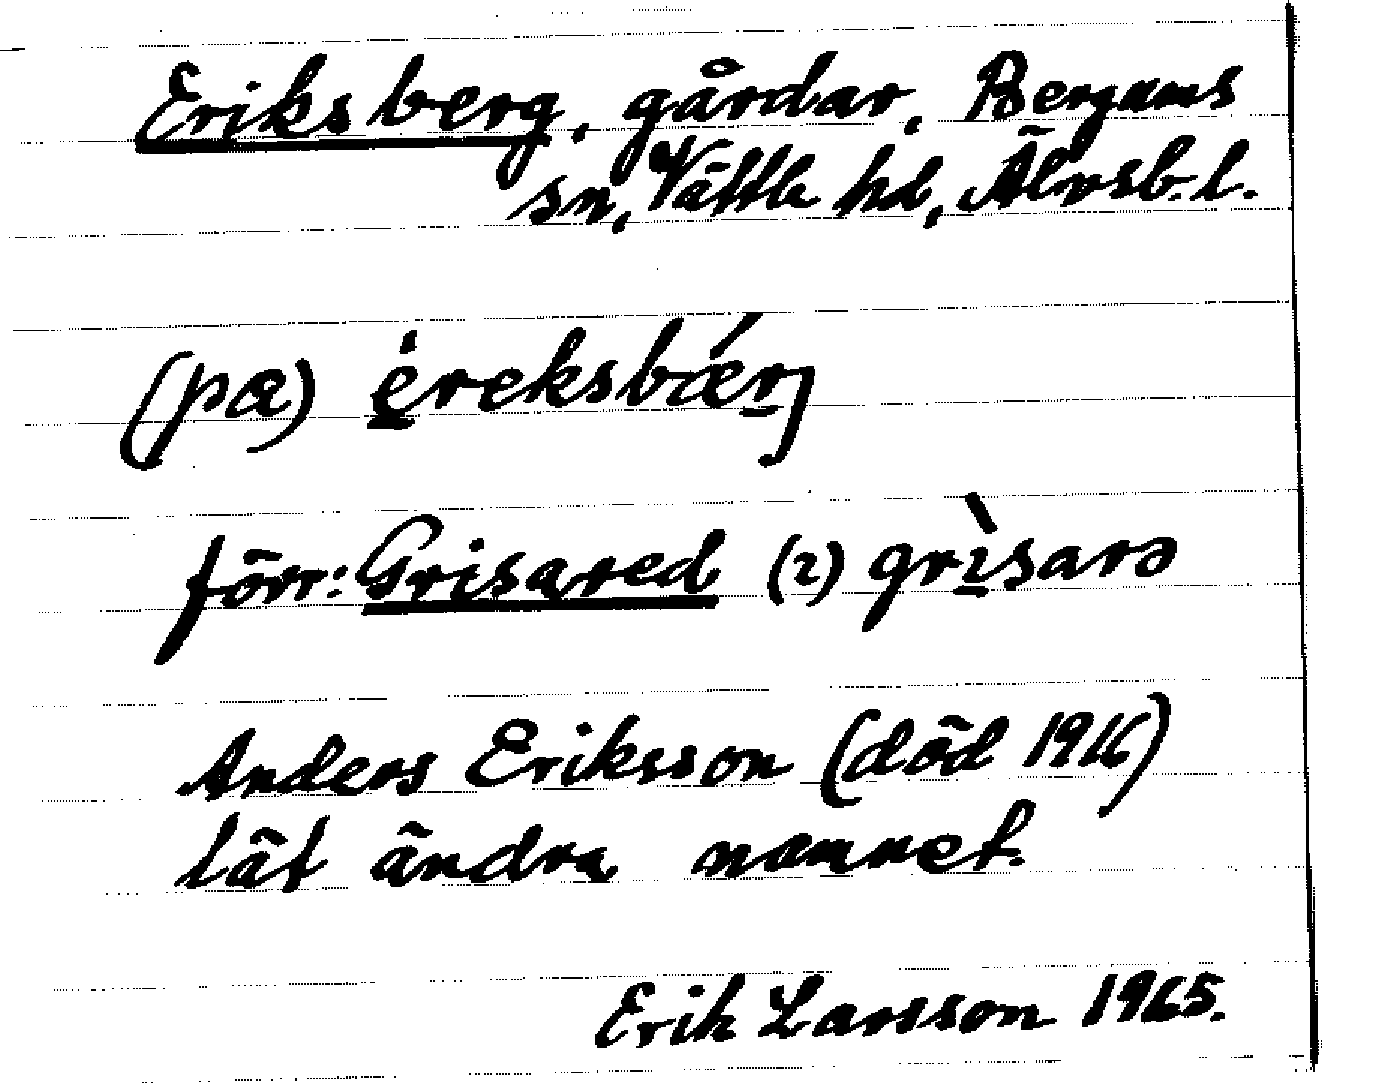 Eriksberg, gårdar, Bergums
sn, Vättle hd, Älvsb. l.
(pa) èreksbǽrj
förr: Grisared (i) grìsarə
Anders Eriksson (död 1916)
lät ändra namnet.
Erik Larsson 1965.